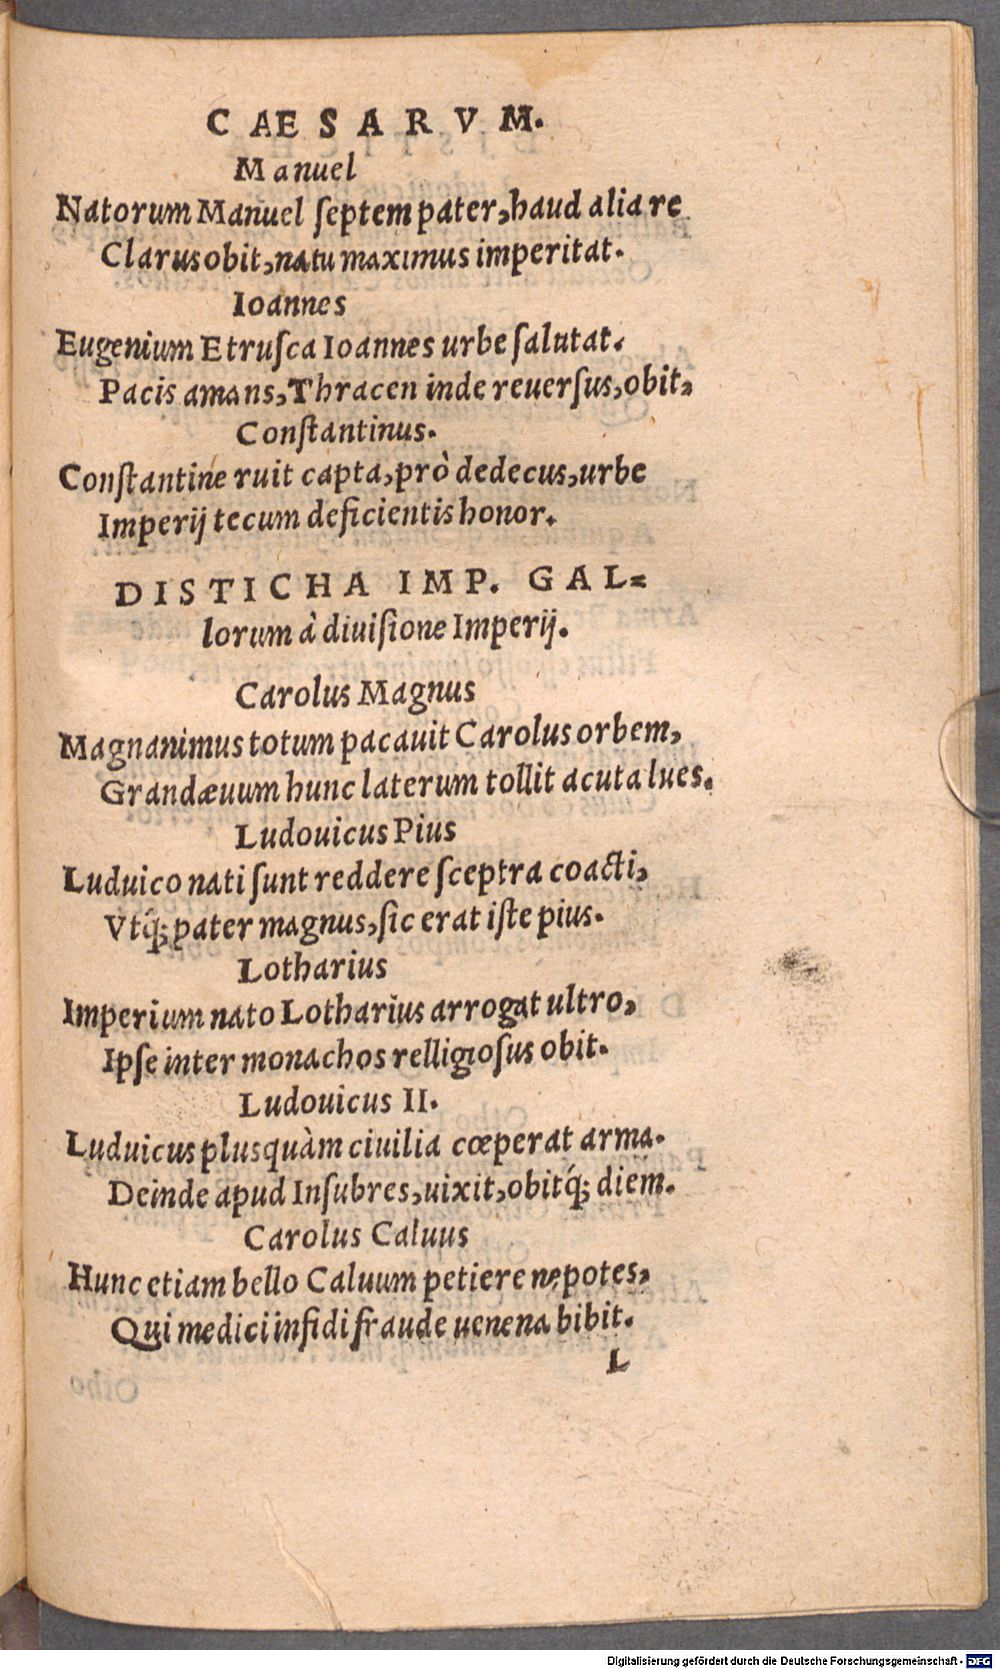 CAESARVM.
Manuel
Natorum Manuel ſeptem pater, haud alia re
Clarus obit, natu maximus imperitat.
Ioannes
Eugenium Etruſca Ioannes urbe ſalutat.
Pacis amans, Thracen inde reuerſus, obit,
Conſtantinus.
Conſtantine ruit capta, prò dedecus, urbe
Imperij tecum deficientis honor.
DISTICHA IMP. GAL-
lorum à diuiſione Imperij.
Carolus Magnus
Magnanimus totum pacauit Carolus orbem,
Grandæuum hunc laterum tollit acuta lues.
Ludouicus Pius
Luduico nati ſunt reddere ſceptra coacti,
Vtq́; pater magnus, ſic erat iſte pius.
Lotharius
Imperium nato Lotharius arrogat ultro,
Ipſe inter monachos relligioſus obit.
Ludouicus II.
Luduicus pluſquàm ciuilia cœperat arma.
Deinde apud Inſubres, uixit, obitq́; diem.
Carolus Caluus
Hunc etiam bello Caluum petiere nepotes,
Qui medici infidi fraude uenena bibit.
L
Digitalisierung gefördert durch die Deutsche Forschungsgemeinschaft - DFG